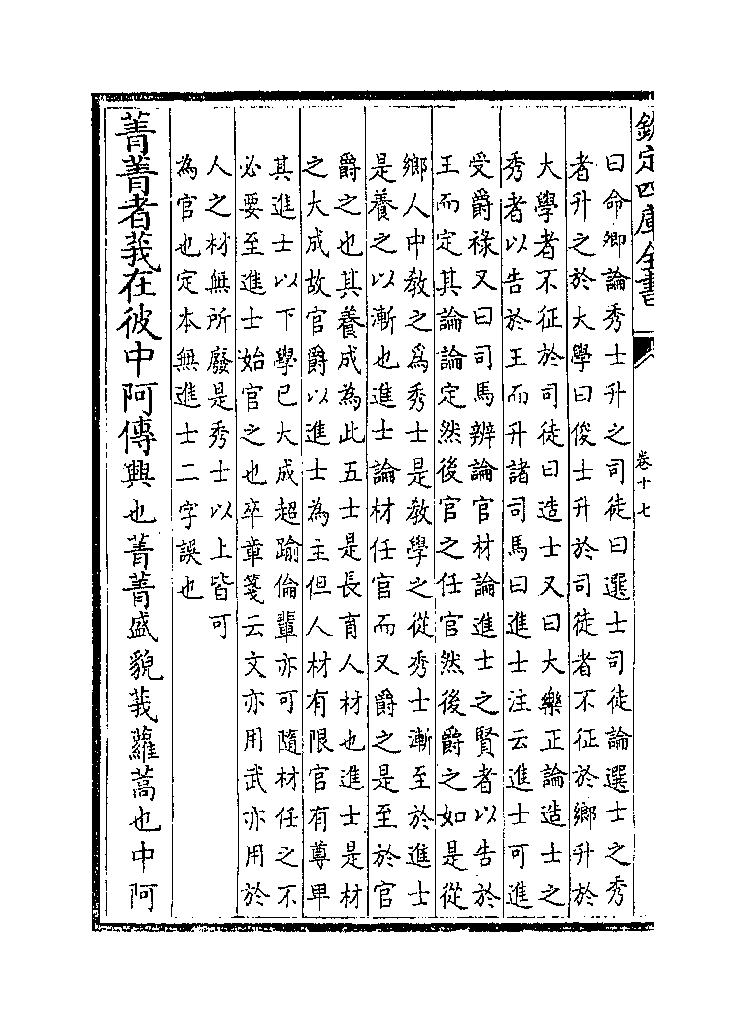 欽定四庫全書
卷十七
曰命鄉論秀士升之司徒曰選士司徒論選士之秀
者升之於大學曰俊士升於司徒者不征於鄉升於
大學者不征於司徒曰造士又曰大樂正論造士之
秀者以告於王而升諸司馬曰進士注云進士可進
受爵祿又曰司馬辨論官材論進士之賢者以告於
王而定其論論定然後官之任官然後爵之如是從
鄉人中教之為秀士是教學之從秀士漸至於進士
是養之以漸也進士論材任官而又爵之是至於官
爵之也其養成為此五士是長育人材也進士是材
之大成故官爵以進士為主但人材有限官有尊卑
其進士以下學已大成超踰倫輩亦可隨材任之不
必要至進士始官之也卒章箋云文亦用武亦用於
人之材無所廢是秀士以上皆可
為官也定本無進士二字誤也
菁菁者莪在彼中阿傳興也菁菁盛貌莪蘿蒿也中阿